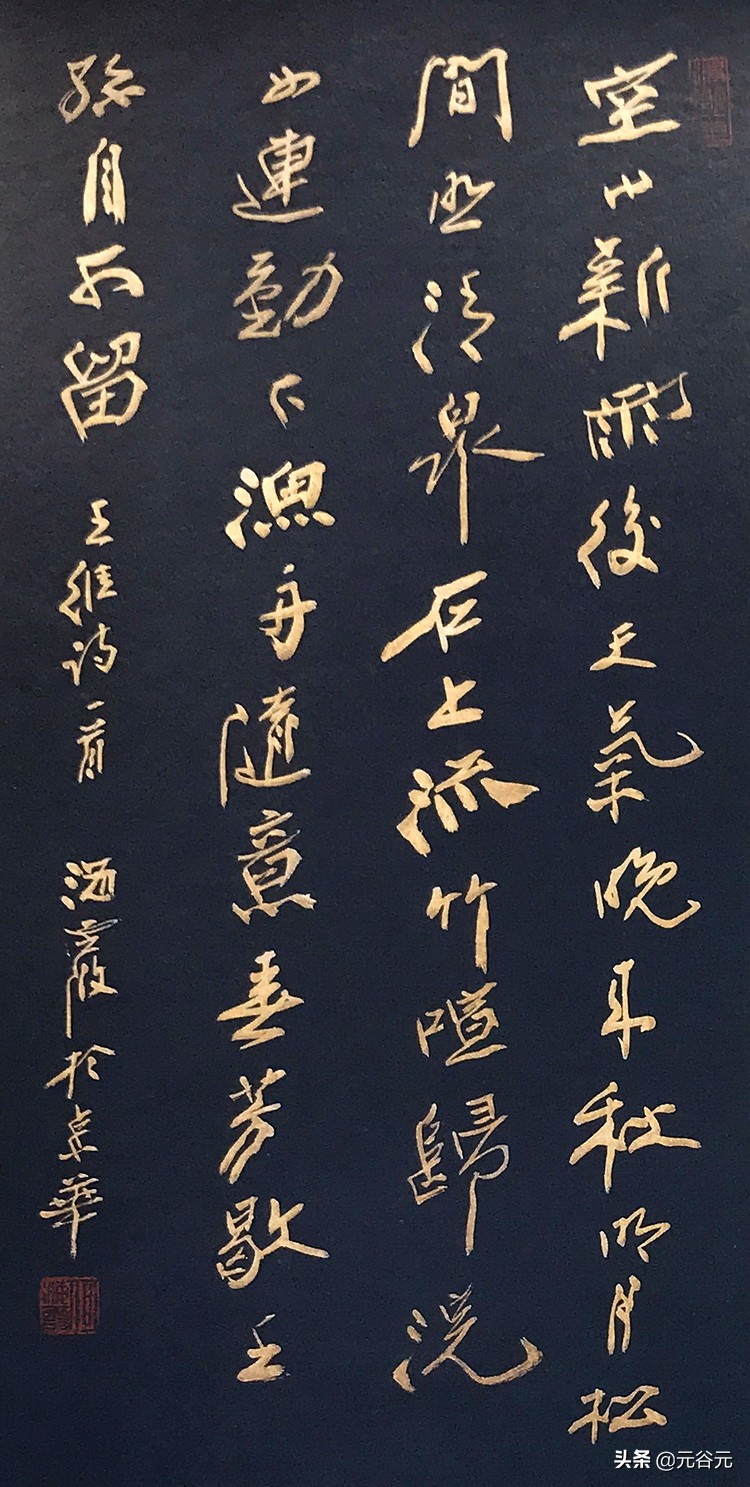 空山新雨後天氣晚來秋明月松
間照清泉石上流竹喧歸浣
女連動下漁舟隨意春芳歇王
孫自不留 王維詩一首 於京華
头条 @元谷元